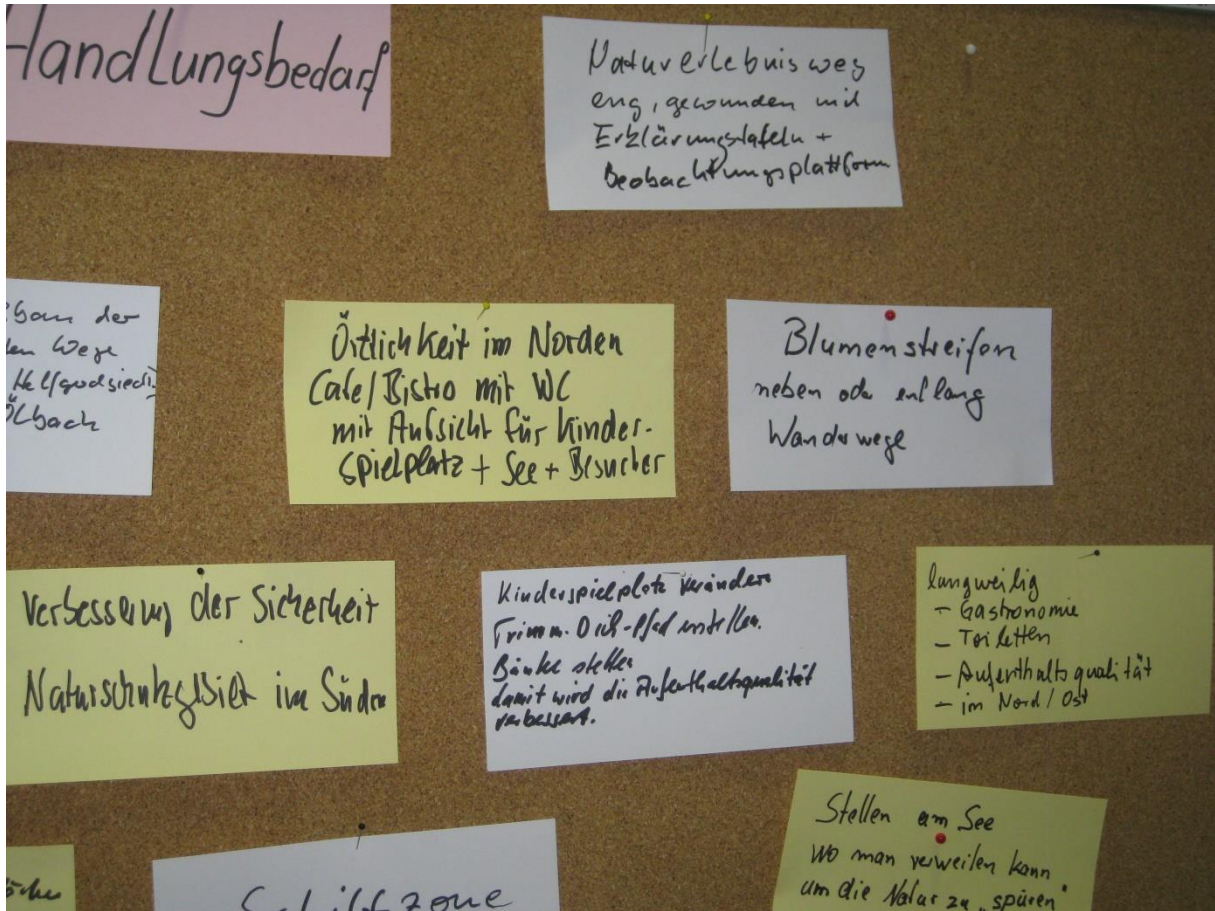 Handlungsbedarf
Naturerlebnisweg
eng, gewunden mit
Erklärungstafeln +
Beobachtungsplattform
der
Wege
Ölbach
Örtlichkeit im Norden
Cafe/Bistro mit WC
mit Aufsicht für Kinder-
spielplatz + See + Besucher
Blumenstreifen
neben oder entlang
Wanderwege
Verbesserung der Sicherheit
Naturschutzgebiet im Süden
Kinderspielplatz verändern
Trimm-Dich-Pfad erstellen.
Bänke stellen
damit wird die Aufenthaltsqualität
verbessert.
langweilig
- Gastronomie
- Toiletten
- Aufenthaltsqualität
- im Nord/Ost
Schilfzone
Stellen am See
wo man verweilen kann
um die Natur zu „spüren"